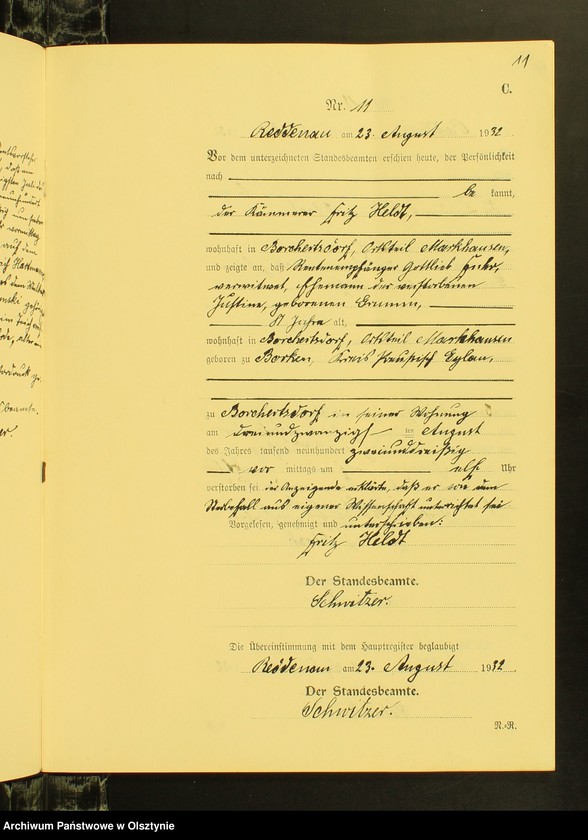 11
C.
Nr. 11
Reddenau am 23. August 1932
Vor dem unterzeichneten Standesbeamten erschien heute, der Persönlichkeit
nach
be kannt,
der Kämmerer Fritz Heldt,
wohnhaft in Borchertsdorf, Ortsteil Markhausen,
und zeigte an, daß Rentenempfänger Gottlieb Fuhr,
verwitwet, Ehemann der verstorbenen
Justine, geborenen
Jahre alt,
wohnhaft in Borchertsdorf, Ortsteil Markhausen
geboren zu Borken, Kreis Preußisch Eylau,
zu Borchertsdorf in seiner Wohnung
am dreiundzwanzigsten August
des Jahres tausend neunhundert zweiunddreißig
vor mittags um elf Uhr
verstorben sei. Der Anzeigende erklärte, daß er von dem
Sterbefall aus eigener Wissenschaft unterrichtet sei
Vorgelesen, genehmigt und unterschrieben:
Fritz Heldt
Der Standesbeamte.
Schwitzer.
Die Übereinstimmung mit dem Hauptregister beglaubigt
Reddenau am 23. August 1932
Der Standesbeamte.
Schwitzer.
R.-R.
Archiwum Państwowe w Olsztynie